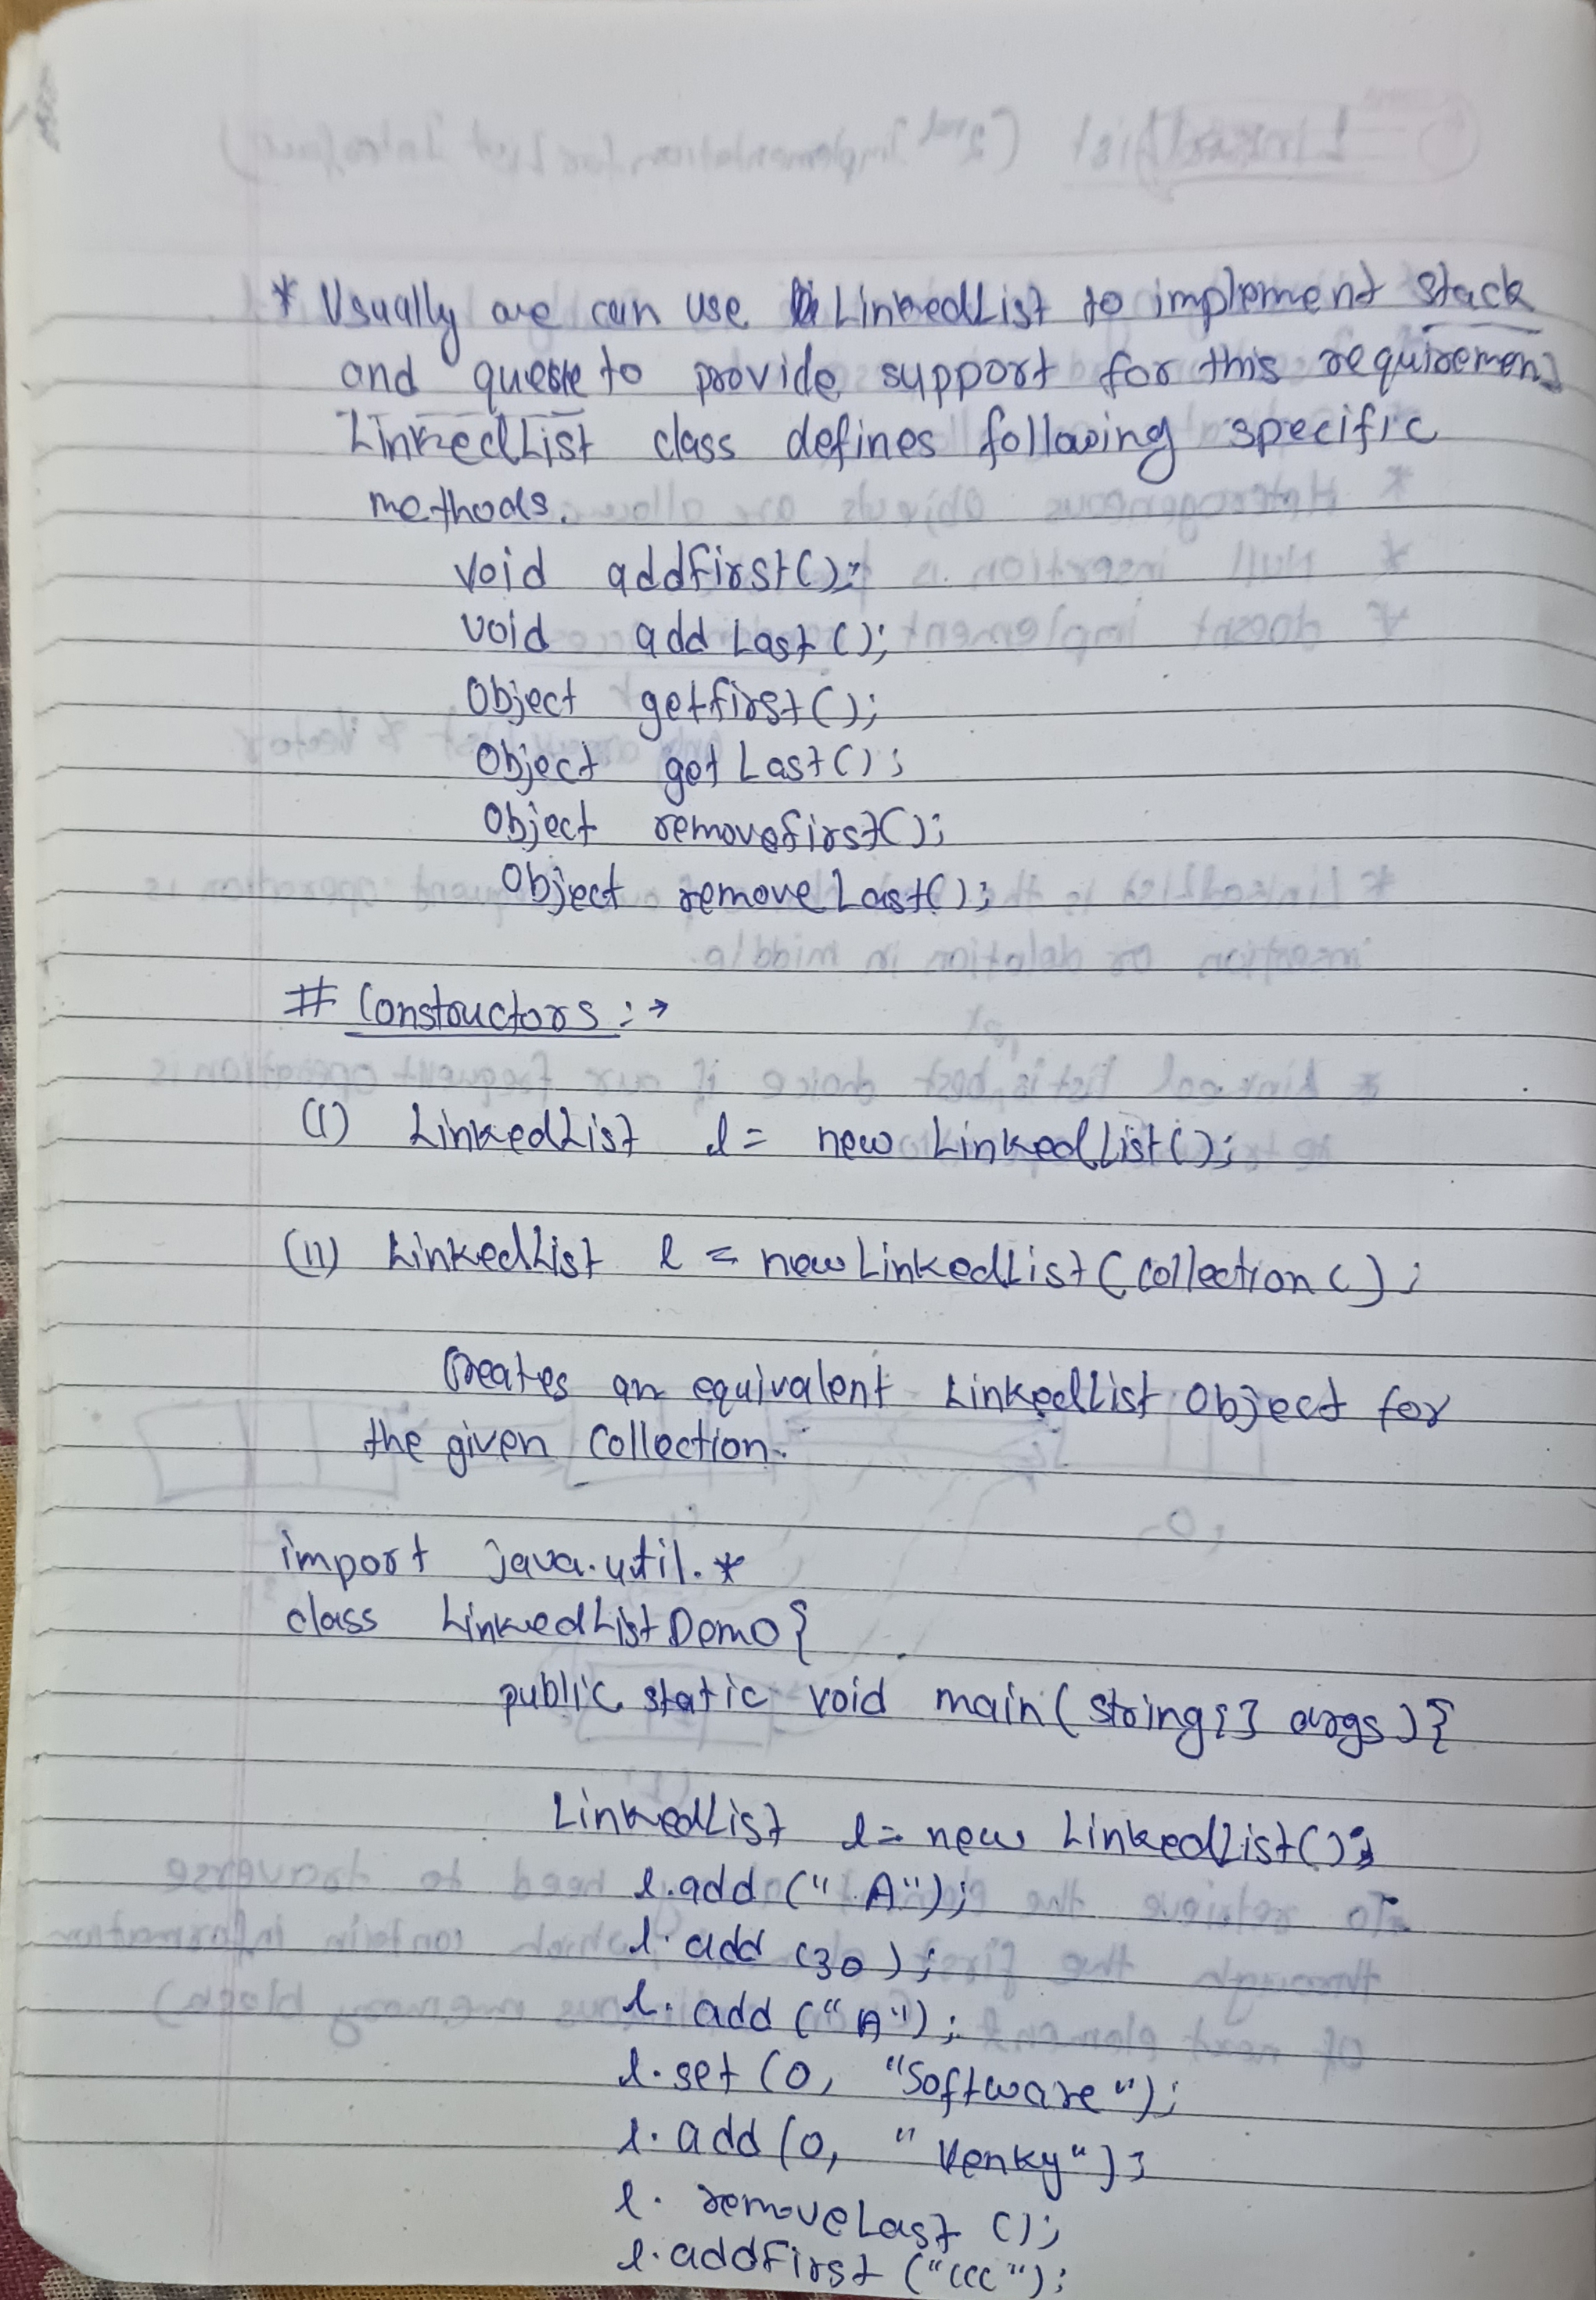 * Usually we can use LinkedList to implement stack
and queue to provide support for this requirement
LinkedList class defines following specific
methods.
void addfirst();
void addLast();
Object getfirst();
Object getLast();
Object removefirst();
Object removeLast();
# Constructors :→
(I) LinkedList l = new LinkedList();
(II) LinkedList l = new LinkedList(Collection c);
Creates an equivalent LinkedList Object for
the given Collection.
import java.util.*
class LinkedListDemo{
public static void main(string[] args){
LinkedList l = new LinkedList();
l.add("A");
l.add(30);
l.add("A");
l.set(0, "Software");
l.add(0, "Venky");
l.removeLast();
l.addFirst("ccc");